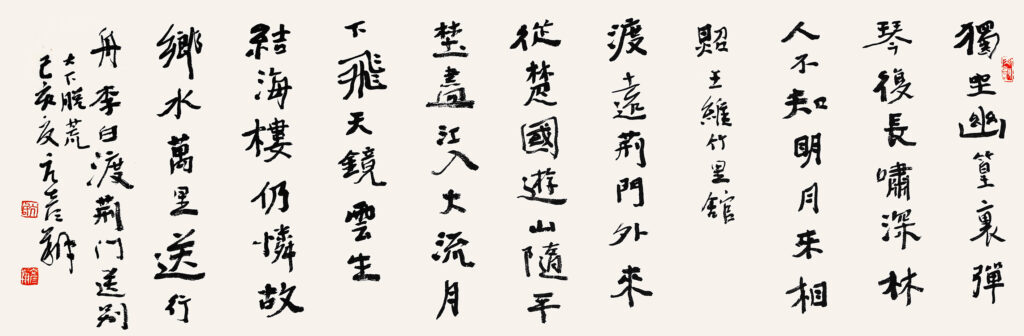 獨坐幽篁裏彈
琴復長嘯深林
人不知明月來相
照王維竹里館
渡遠荆門外來
從楚國遊山隨平
埜盡江入大流月
下飛天鏡雲生
結海樓仍憐故
鄉水萬里送行
舟李白渡荆门送别
大下脱荒
己亥夏